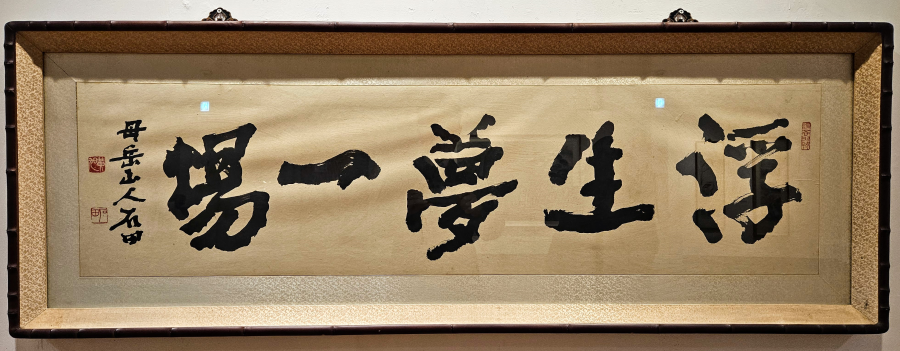 浮生夢一場
母岳山人石田